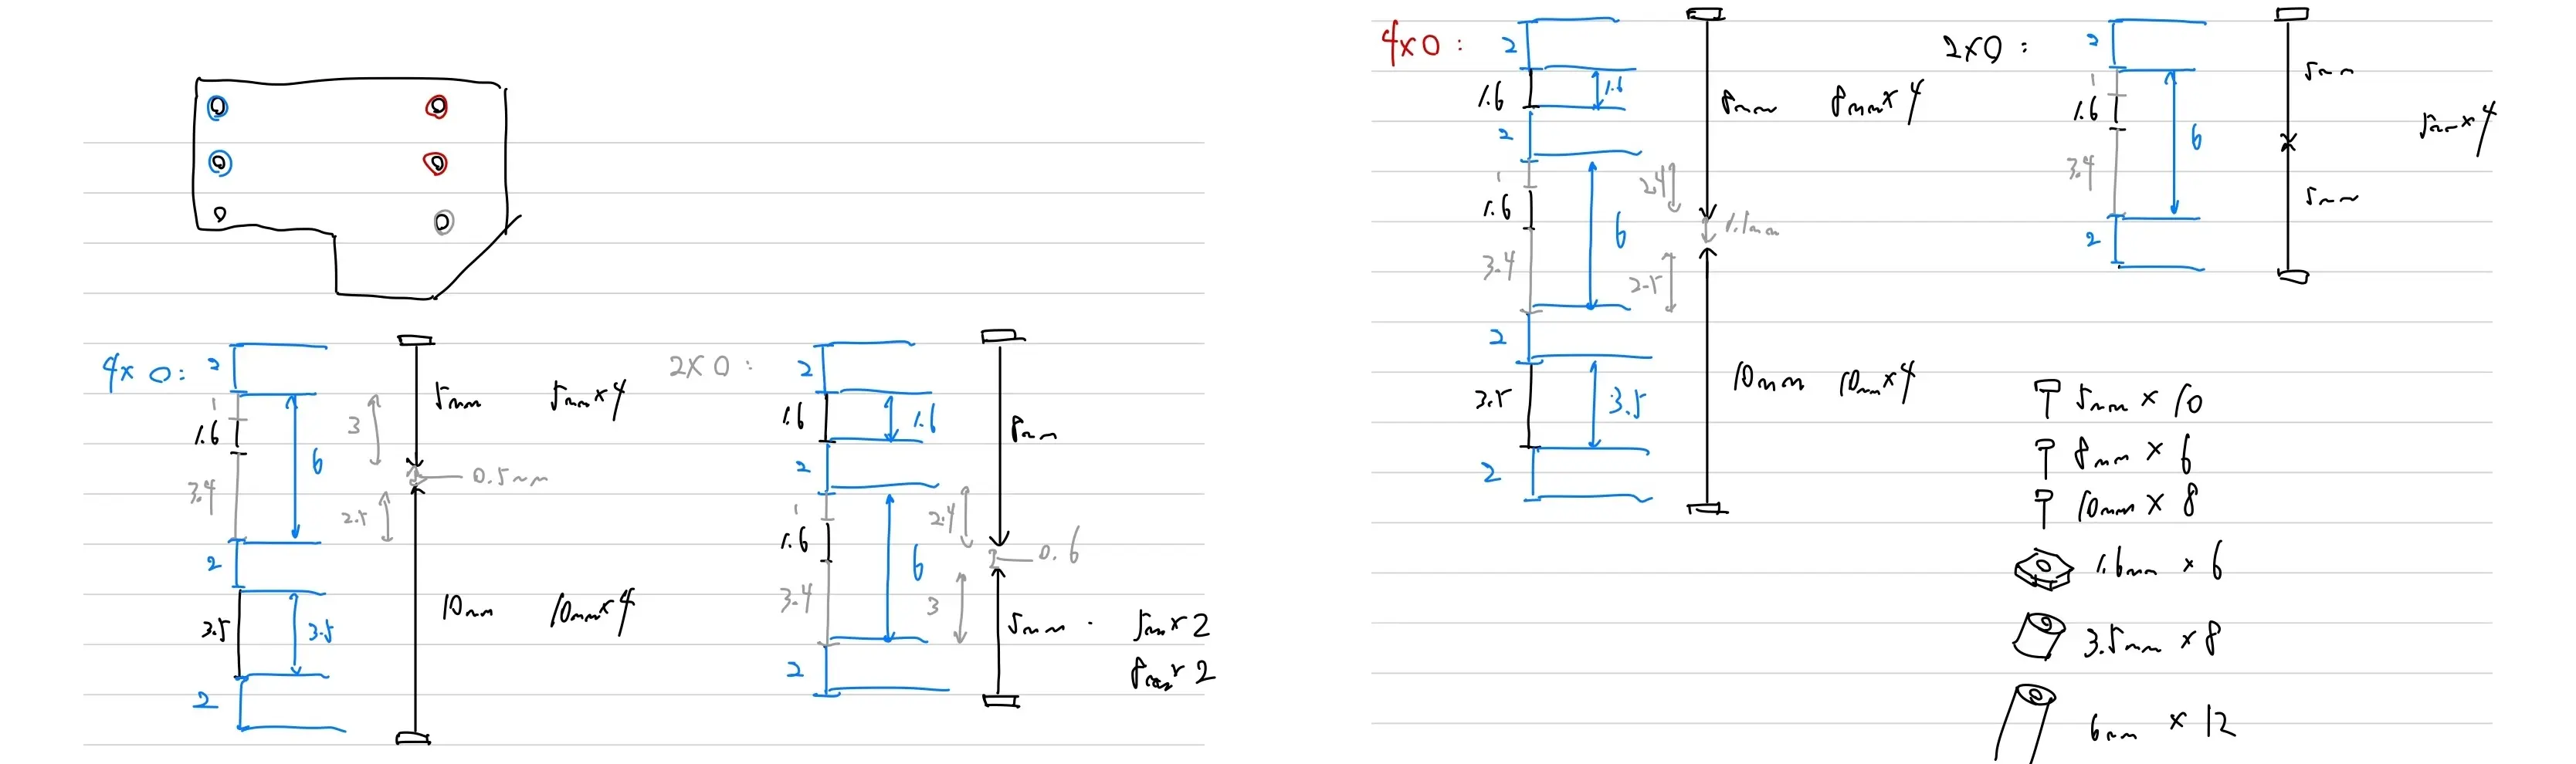 4×0:
2
1
1.6
3.4
2
3.5
2
6
3.5
3
2.5
5mm
5mm×4
0.5mm
10mm
10mm×4
2×0:
2
1.6
2
1
1.6
3.4
2
1.6
6
2.4
3
8mm
0.6
5mm
5mm×2
8mm×2
4×0:
2
1.6
2
1
1.6
3.4
2
3.5
2
1.6
6
3.5
2.4
2.5
8mm
8mm×4
1.1mm
10mm
10mm×4
2×0:
2
1
1.6
3.4
2
6
5mm
5mm
5mm×4
5mm × 10
8mm × 6
10mm × 8
1.6mm × 6
3.5mm × 8
6mm × 12